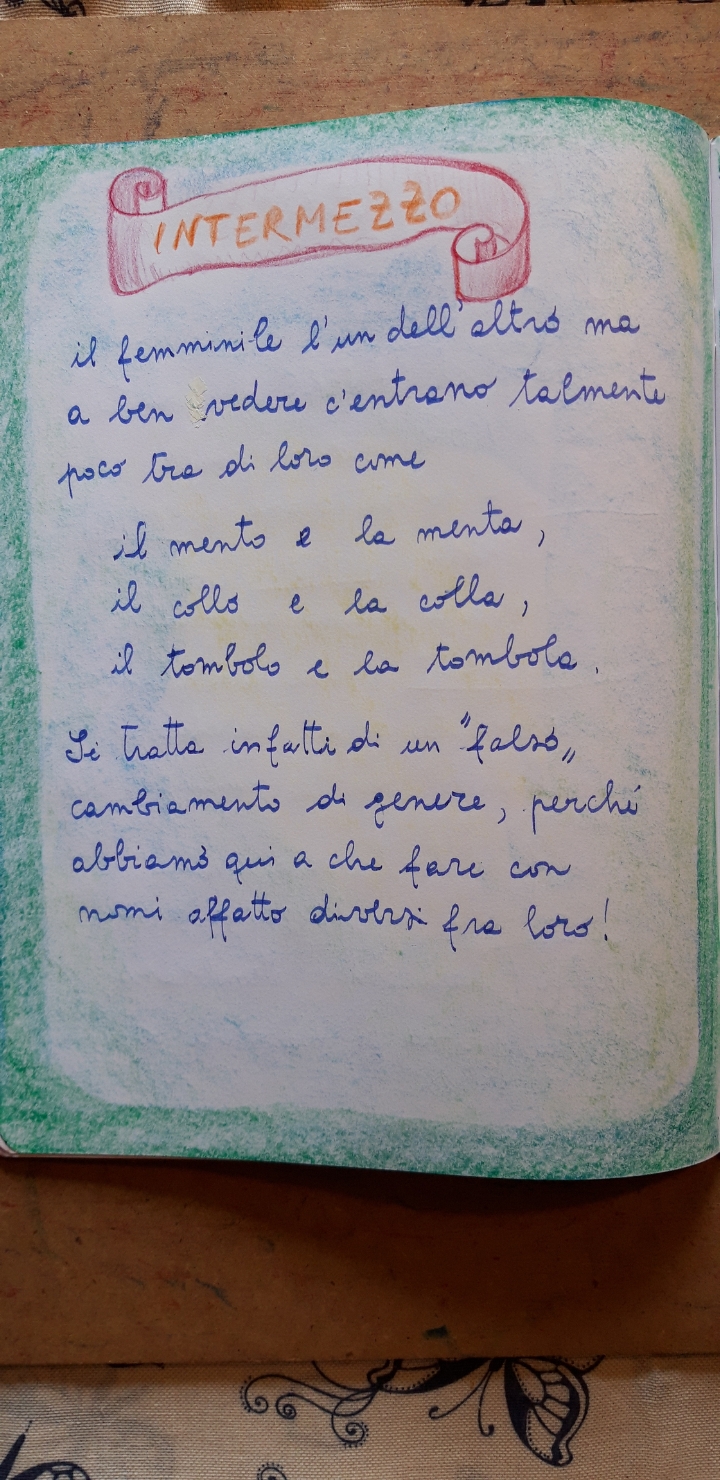 INTERMEZZO
il femminile l'un dell'altro ma
a ben vedere c'entrano talmente
poco tra di loro come
il mento e la menta,
il collo e la colla,
il tombolo e la tombola.
Si tratta infatti di un "falso„
cambiamento di genere, perché
abbiamo qui a che fare con
nomi affatto diversi fra loro!